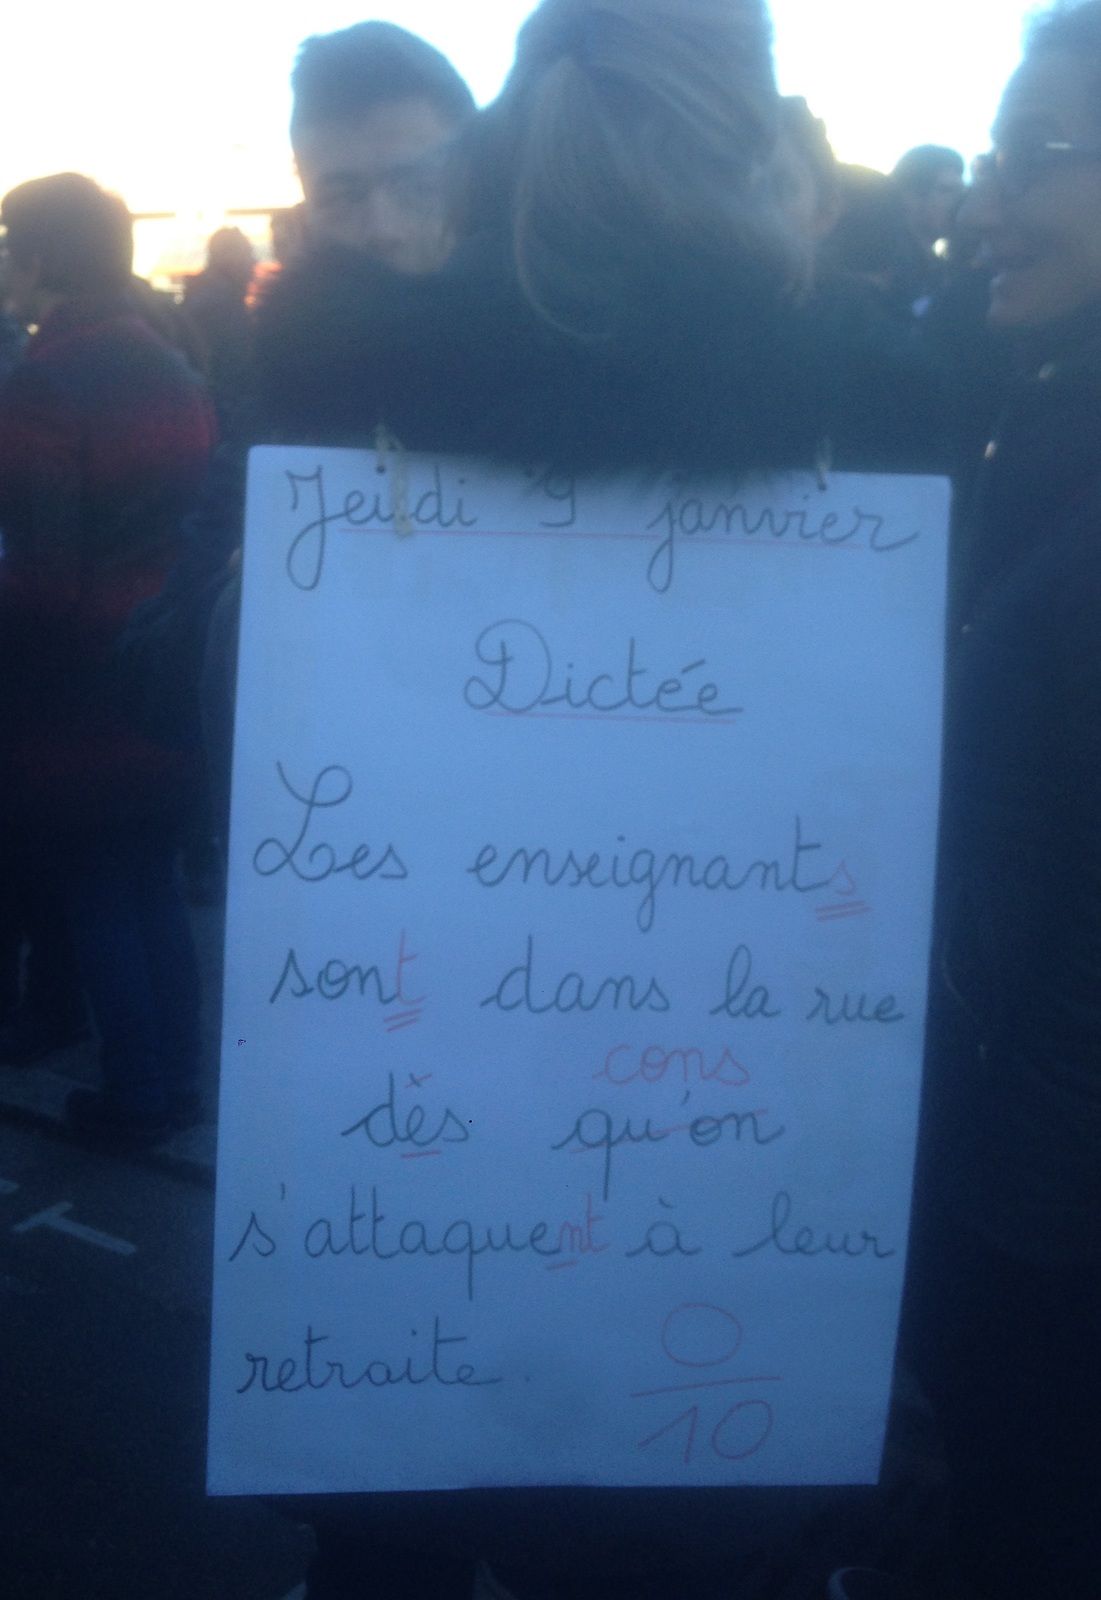 Jeudi 9 janvier
Dictée
Les enseignants
sont dans la rue
cons
dès qu'on
s'attaquent à leur
retraite.
0
10